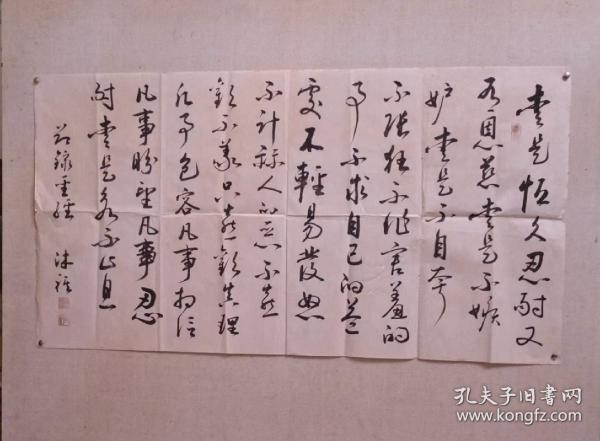 愛是恒久忍耐又
有恩慈愛是不嫉
妒愛是不自夸
不張狂不作害羞的
事不求自己的益
處不輕易發怒
不計算人的惡不喜
歡不義只喜歡真理
凡事包容凡事相信
凡事盼望凡事忍
耐愛是永不止息
節錄聖經
孔夫子旧书网
www.kongfz.com